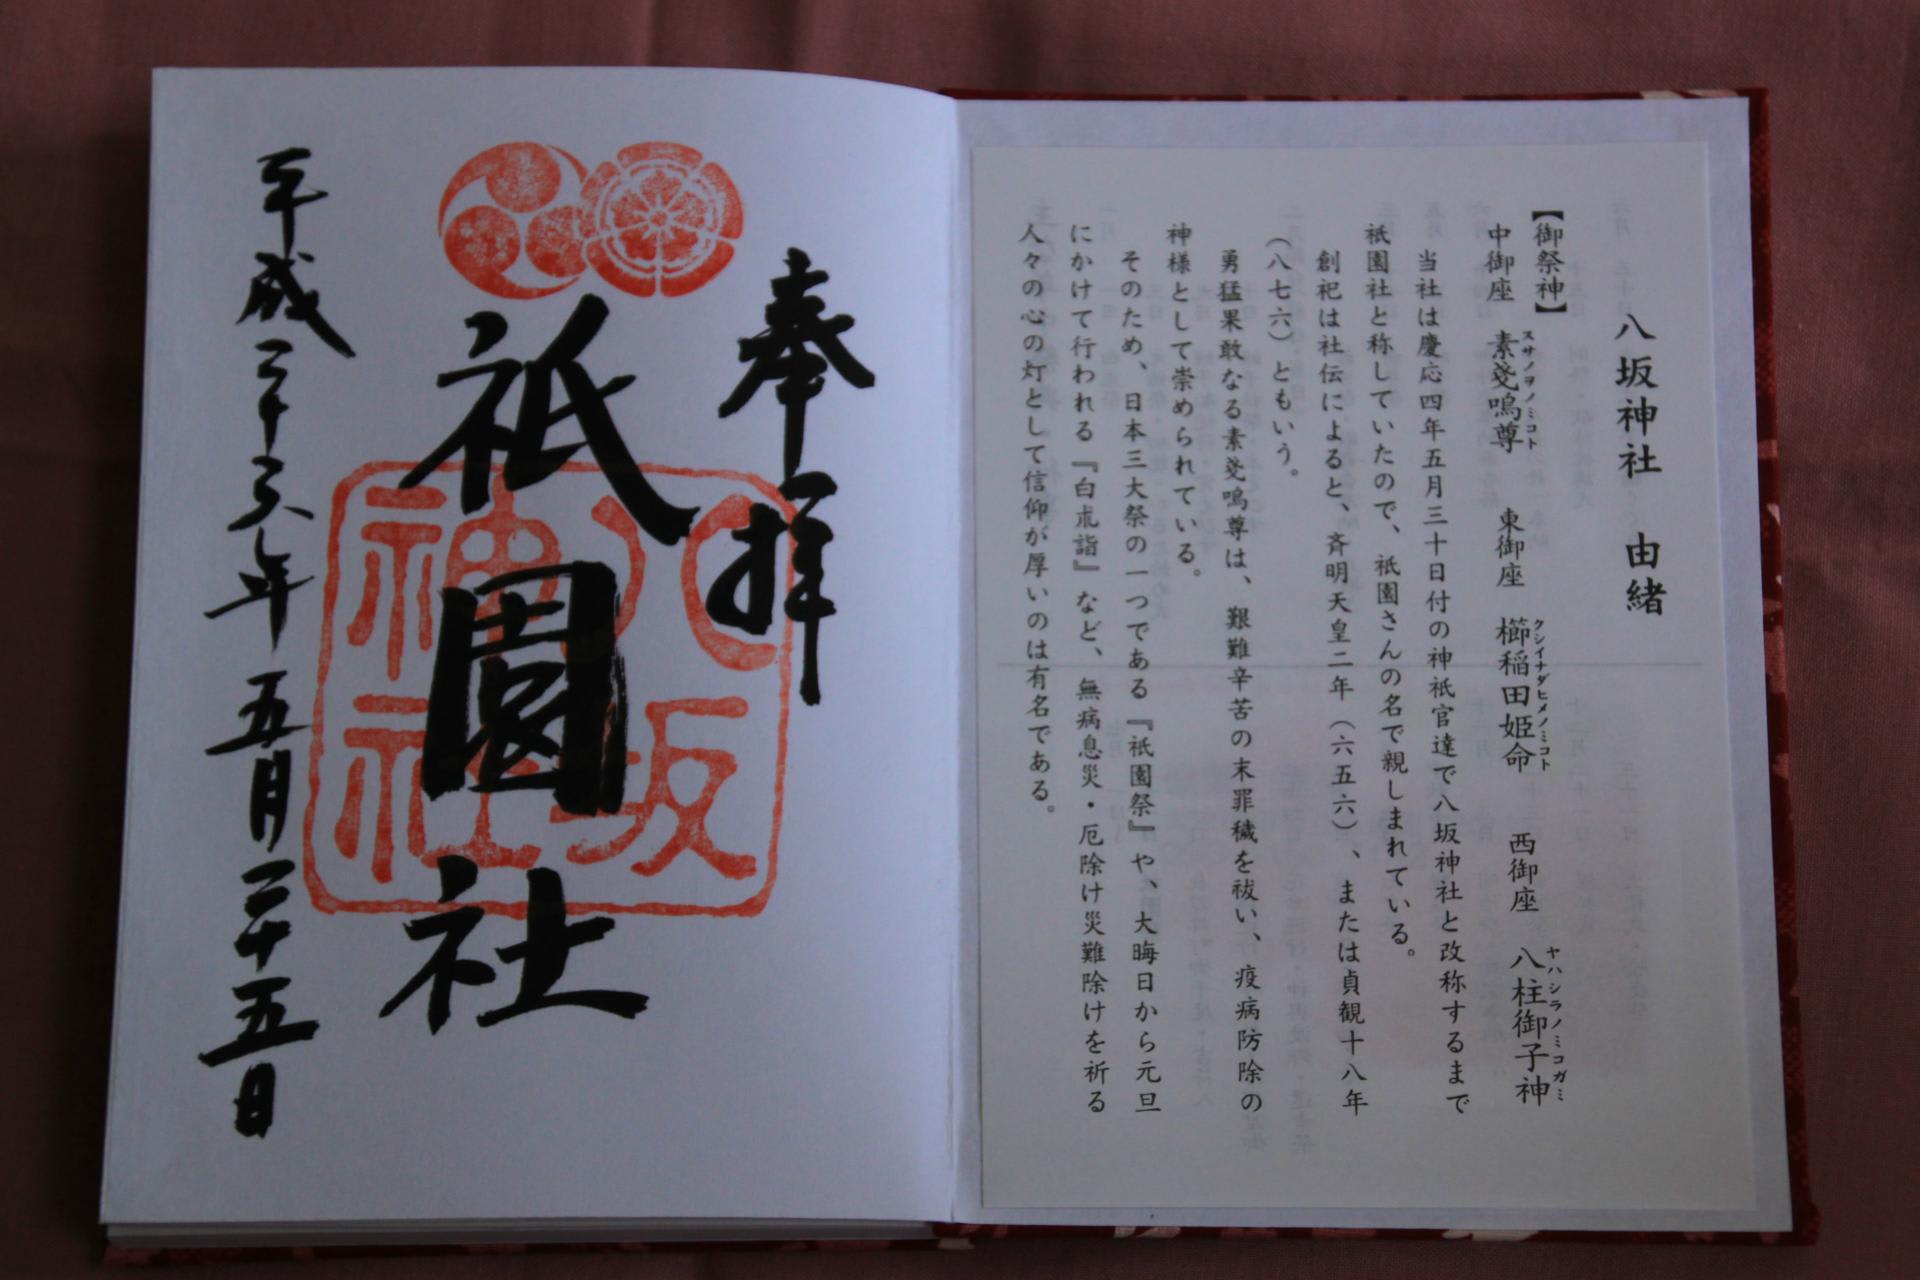 八坂神社 由緒
【御祭神】
中御座 素戔嗚尊 東御座 櫛稲田姫命 西御座 八柱御子神
スサノヲノミコト クシイナダヒメノミコト ヤハシラノミコガミ
当社は慶応四年五月三十日付の神祇官達で八坂神社と改称するまで
祇園社と称していたので、祇園さんの名で親しまれている。
創祀は社伝によると、斉明天皇二年(六五六)、または貞観十八年
(八七六)ともいう。
勇猛果敢なる素戔嗚尊は、艱難辛苦の末罪穢を祓い、疫病防除の
神様として崇められている。
そのため、日本三大祭の一つである『祇園祭』や、大晦日から元旦
にかけて行われる『白朮詣』など、無病息災・厄除け災難除けを祈る
人々の心の灯として信仰が厚いのは有名である。
奉拝
祇園社
八坂
神社
平成二十六年五月二十五日